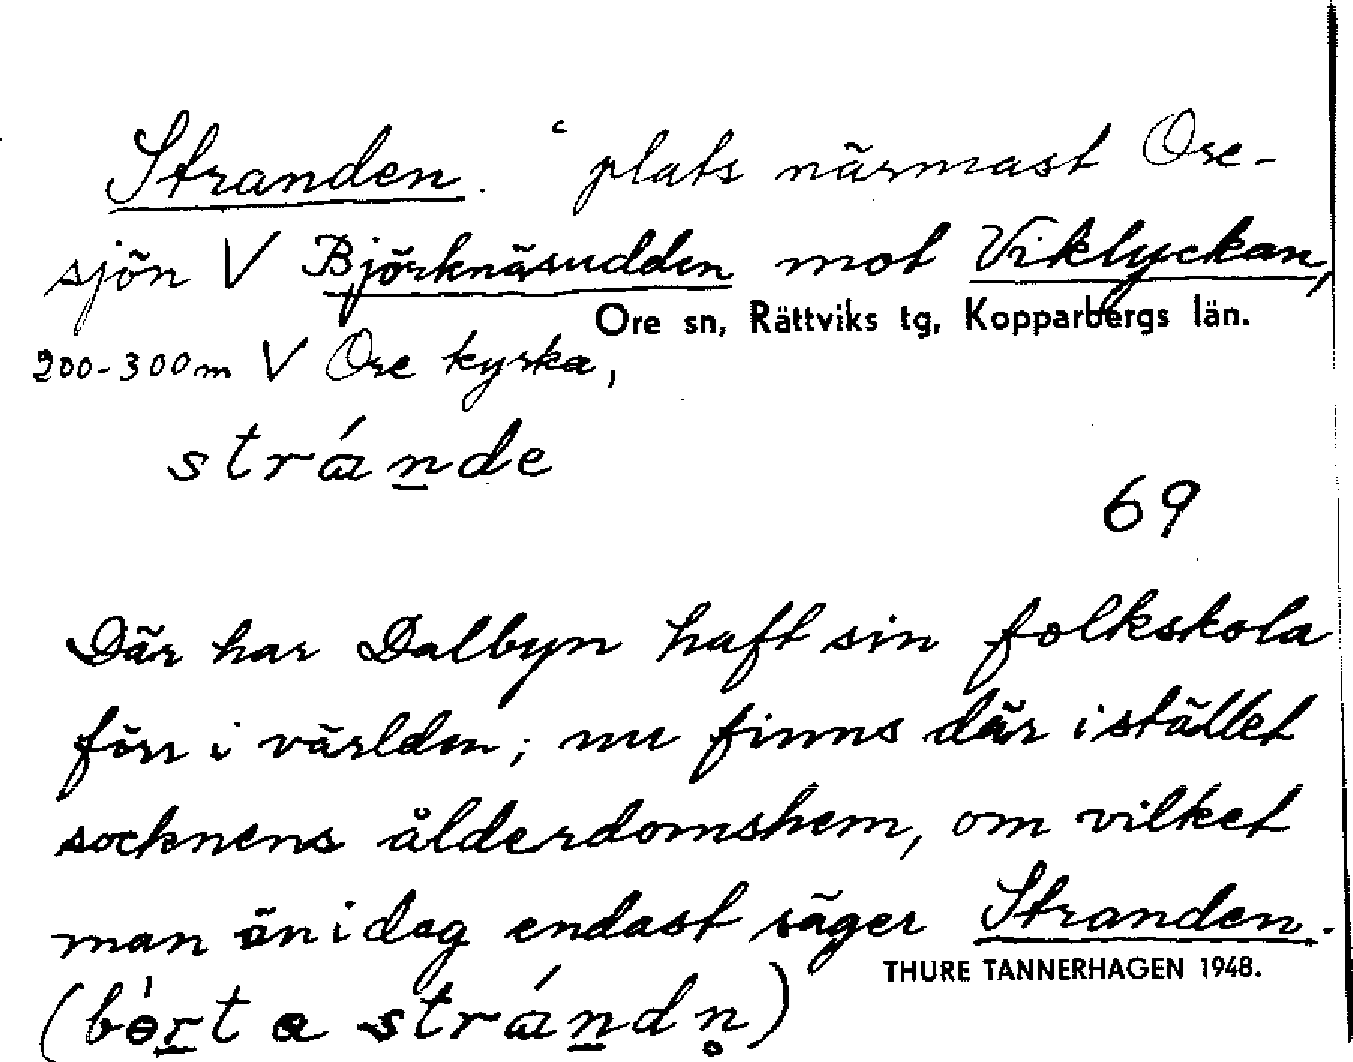 Stranden. plats närmast Ore-
sjön V Björknäsudden mot Viklyckan,
Ore sn, Rättviks tg, Kopparbergs län.
200-300m V Ore kyrka,
strá̱nde
69
Där har Dalbyn haft sin folkskola
förr i världen; nu finns där i stället
socknens ålderdomshem, om vilket
man än i dag endast säger Stranden.
THURE TANNERHAGEN 1948.